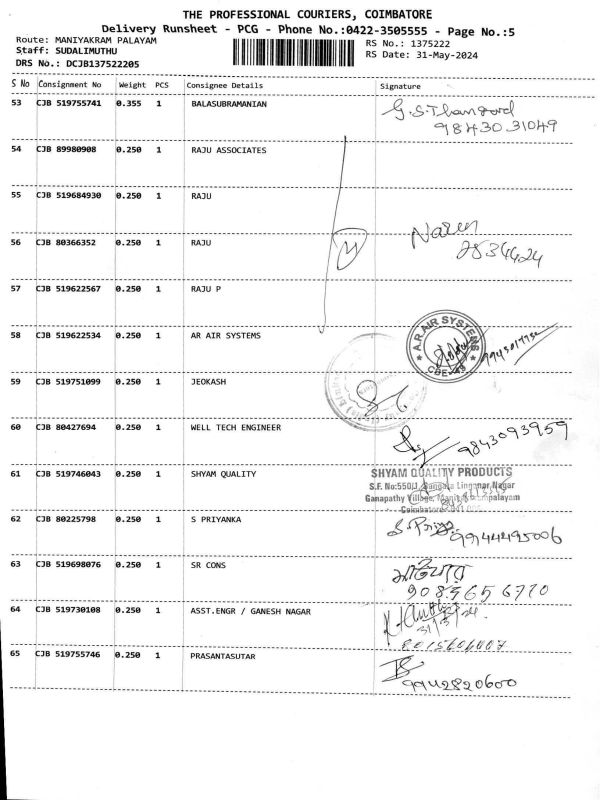 THE PROFESSIONAL COURIERS, COIMBATORE
Delivery Runsheet - PCG - Phone No.:0422-3505555 - Page No.:5
Route: MANIYAKRAM PALAYAM
RS No.: 1375222
Staff: SUDALIMUTHU
RS Date: 31-May-2024
DRS No.: DCJB137522205
S No Consignment No Weight PCS Consignee Details Signature
53 CJB 519755741 0.355 1 BALASUBRAMANIAN
98430 31049
54 CJB 89980908 0.250 1 RAJU ASSOCIATES
55 CJB 519684930 0.250 1 RAJU
56 CJB 80366352 0.250 1 RAJU Naren
2534424
57 CJB 519622567 0.250 1 RAJU P
58 CJB 519622534 0.250 1 AR AIR SYSTEMS A.R.AIR SYSTEMS
59 CJB 519751099 0.250 1 JEOKASH
60 CJB 80427694 0.250 1 WELL TECH ENGINEER
9843093959
61 CJB 519746043 0.250 1 SHYAM QUALITY SHYAM QUALITY PRODUCTS
S.F. No:550/J, Lingapar Nagar
Ganapathy Village,
Coimbatore
62 CJB 80225798 0.250 1 S PRIYANKA
9944495006
63 CJB 519698076 0.250 1 SR CONS
64 CJB 519730108 0.250 1 ASST.ENGR / GANESH NAGAR
65 CJB 519755746 0.250 1 PRASANTASUTAR
9942820600